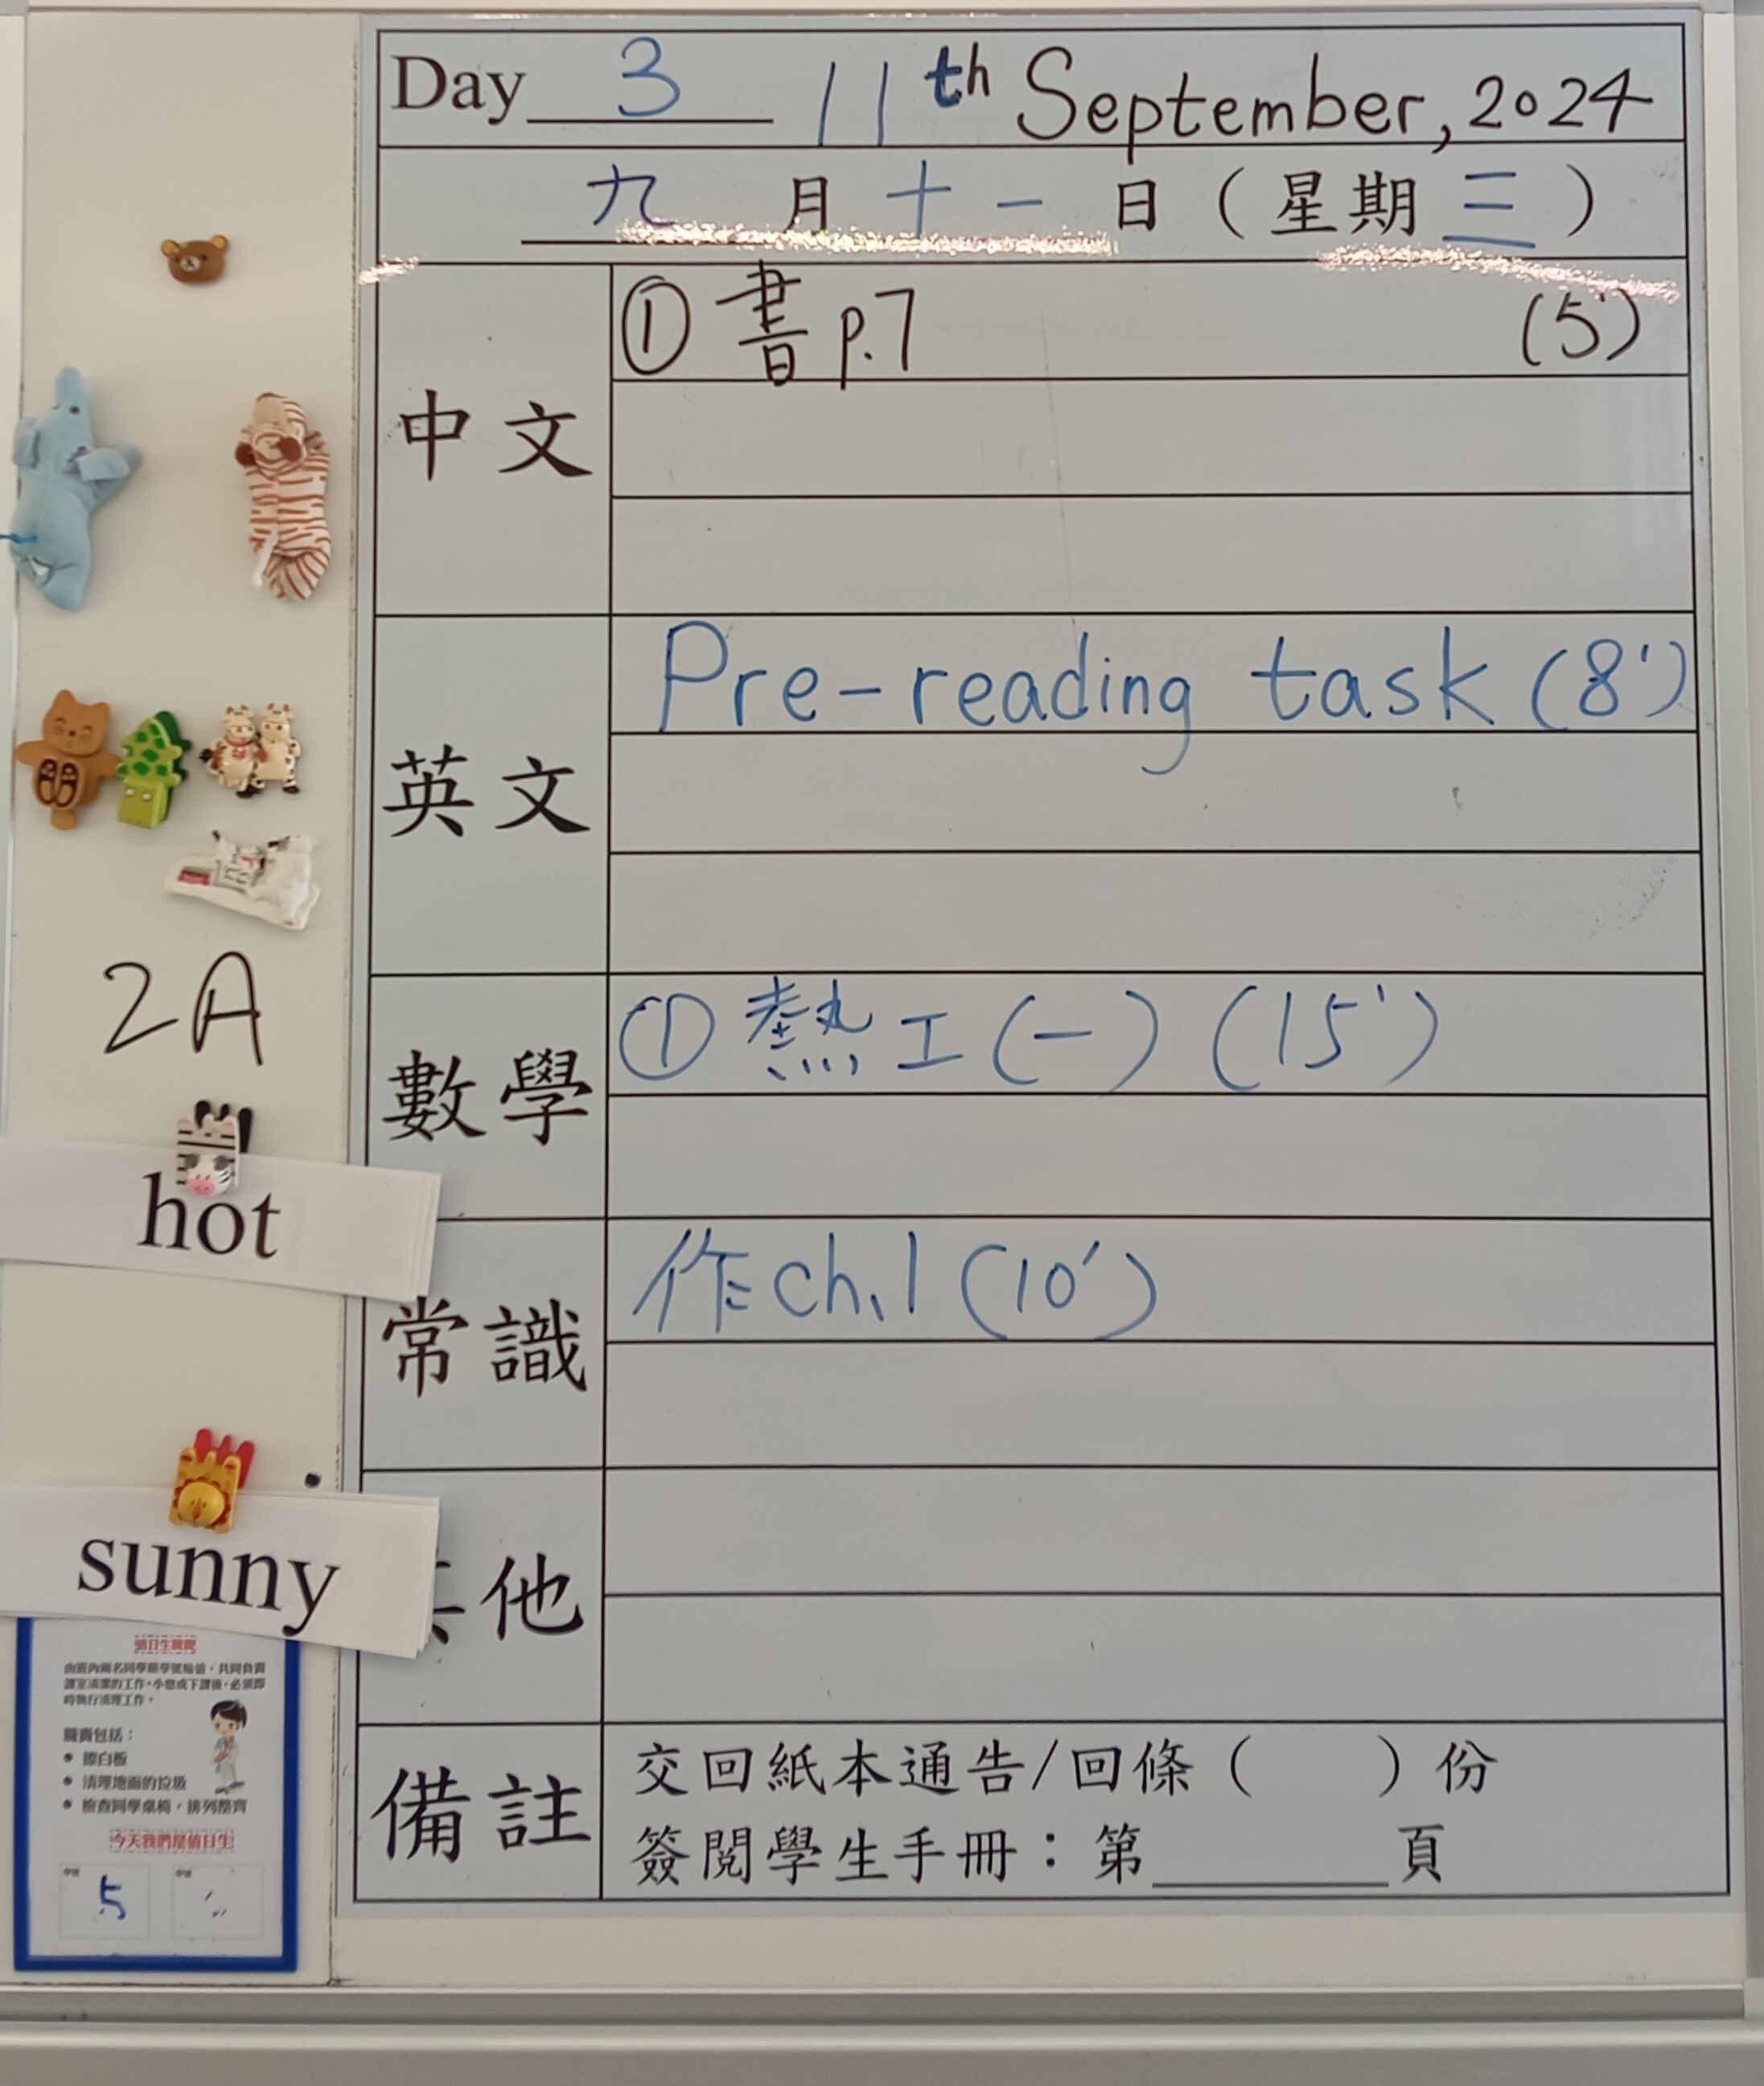 Day 3 11th September, 2024
九 月 十一 日（星期三）
中文
① 書 p.7 (5')
英文
Pre-reading task (8')
數學
① 熱工(一) (15')
常識
作 ch.1 (10')
他
備註
交回紙本通告/回條（ ）份
簽閱學生手冊：第 頁
2A
hot
sunny
值日生職責
由班內兩名同學順學號輪值，共同負責
課室清潔的工作。小息或下課後，必須即
時執行清理工作。
職責包括：
擦白板
清理地面的垃圾
檢查同學桌椅，排列整齊
今天我們是值日生
學號 學號
5